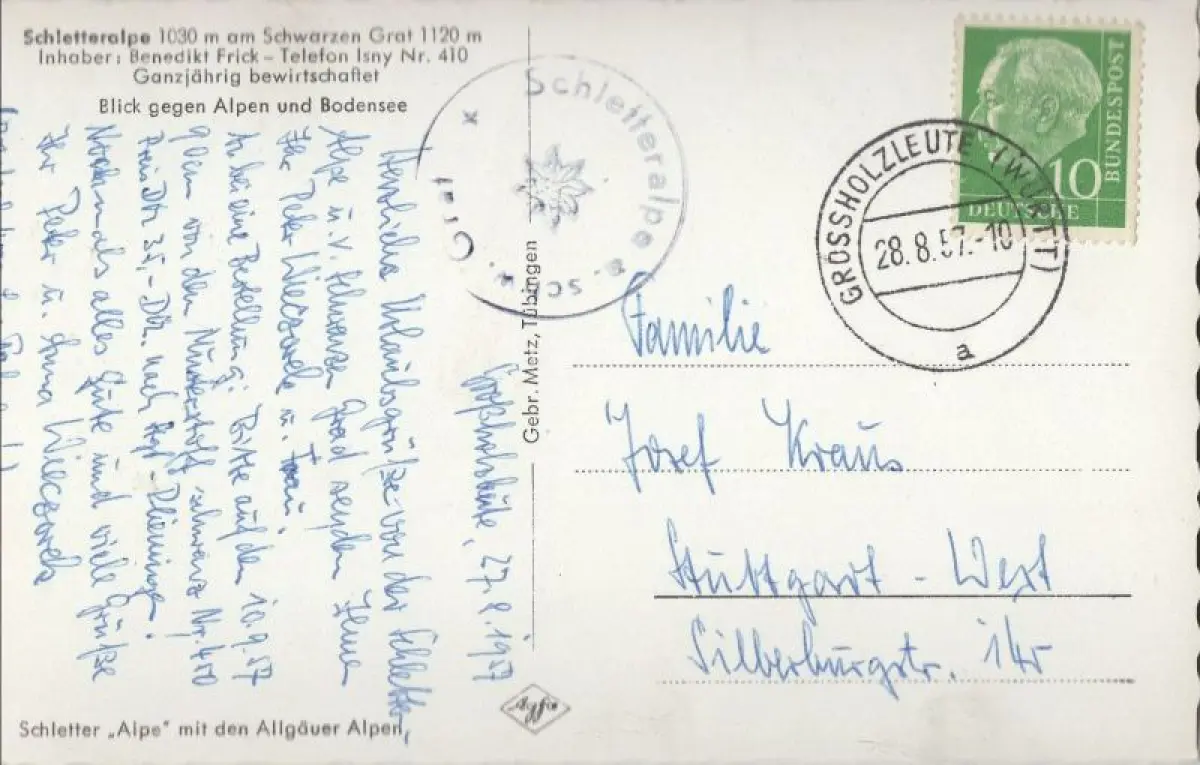 Schletteralpe 1030 m am Schwarzen Grat 1120 m
Inhaber: Benedikt Frick – Telefon Isny Nr. 410
Ganzjährig bewirtschaftet
Blick gegen Alpen und Bodensee
Großholzleute, 27.8.1957
Herzliche Urlaubsgrüße von der Schletter
Alpe u. v. schwarzen Grad senden Ihnen
Ihr Peter Wieczorek u. Frau.
habe eine Bestellung: Bitte auf den 10.9.57
von dem Musterstoff schwarz Nr. 400
Preis DM 35,- DM. nach
Nochmals alles Gute und viele Grüße
Ihr Peter u. Anna Wieczorek
Schletter „Alpe" mit den Allgäuer Alpen
Gebr. Metz, Tübingen
Agfa
Schletteralpe
Grat
DEUTSCHE
BUNDESPOST
10
GROSSHOLZLEUTE (WÜRTT)
28.8.57.-10
a
Familie
Josef Kraus
Stuttgart - West
Silberburgstr.